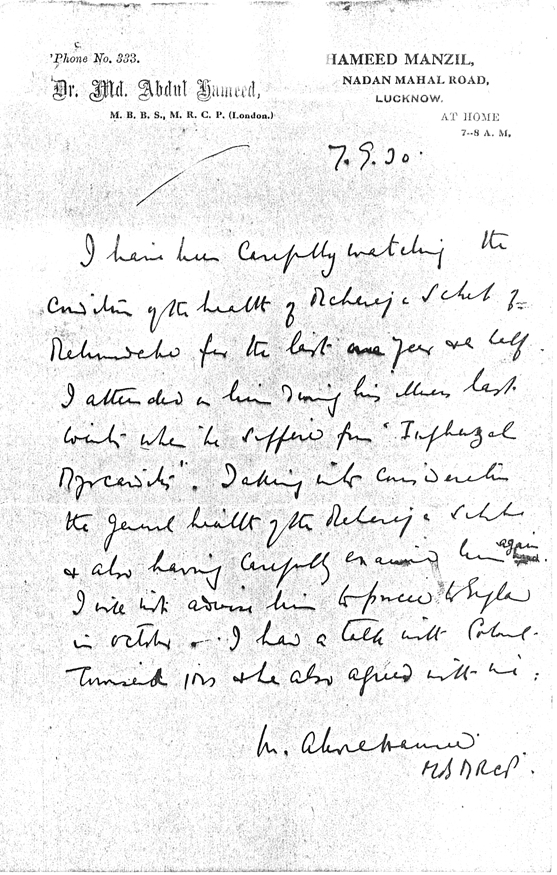 'Phone No. 333.
Dr. Md. Abdul Hameed,
M. B. B. S., M. R. C. P. (London.)
HAMEED MANZIL,
NADAN MAHAL ROAD,
LUCKNOW.
AT HOME
7--8 A. M.
7.9.30.
I have been carefully watching the
condition of the health of Maharaja Saheb of
for the last one year & a half.
I attended on him during his illness last
winter when he suffered from "Influenzal
Myocarditis". Taking into consideration
the general health of the Maharaja Saheb
& also having carefully examined him again
I will not advise him to proceed to England
in october. I had a talk with Colonel
IMS & he also agreed with me.
M. Abdul Hameed
MB MRCP.